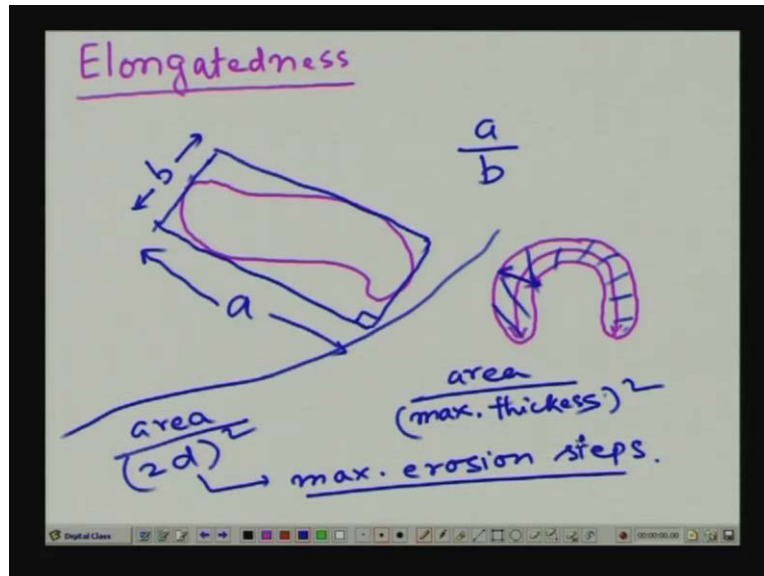 Elongatedness
a
b
b
a
area
(max. thickess)²
area
(2d)²
max. erosion steps.
Digital Class
00:00:00.00